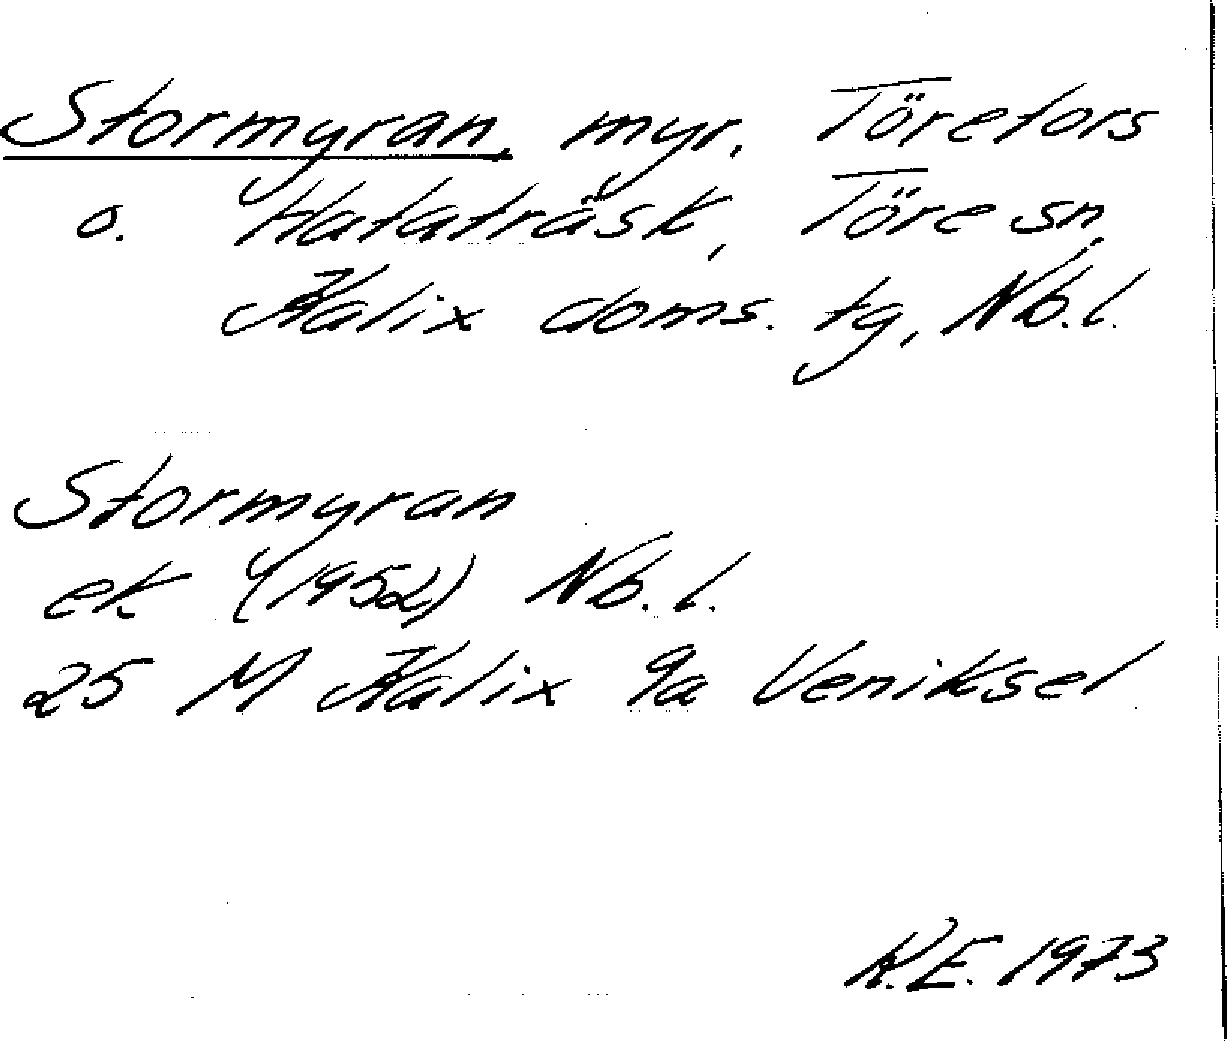 Stormyran, myr, Törefors
o. Hataträsk, Töre sn,
Kalix doms. tg, Nb.l.
Stormyran
ek (1952) Nb.l.
25 M Kalix 9a Veniksel
K.E. 1973